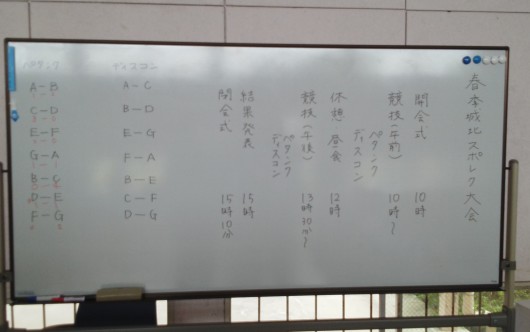 春季城北スポレク大会
開会式 10時
競技(午前) 10時～
ペタンク
ディスコン
休憩・昼食 12時
競技(午後) 13時30分～
ペタンク
ディスコン
結果発表 15時
閉会式 15時10分
ディスコン
A－C
B－D
E－G
F－A
B－E
C－F
D－G
ペタンク
A－B
C－D
E－F
G－A
B－C
D－E
F－G